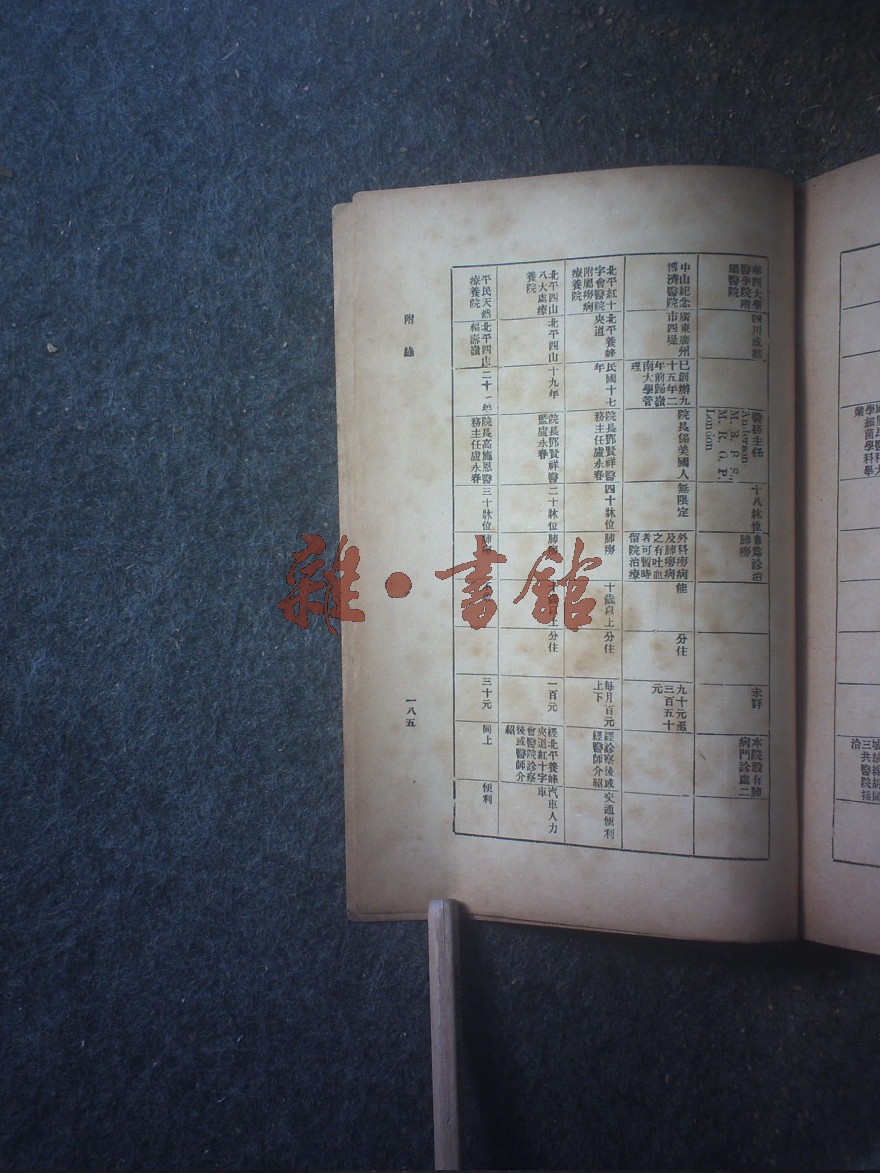 華西大學
醫學院附
屬醫院
四川成都
醫務主任
Anderson
M. B. B. S.,
M. R. G. P.
London
十八牀位
專爲診治
肺癆
未詳
本院設有肺
病門診處二
中山紀念
博濟醫院
廣東廣州
市四堤
已創辦九
十五年二
年前歸嶺
南大學管
理
院長係美國人
無限定
外科癆病
及肺癆病
之有吐血
者可暫時
留院治療
能
分住
九十元至
三百五十
元
北平紅十
字會醫院
附屬癆病
療養院
北平養蜂
夾道
民國十七
年
院長鄧賢祥醫
務主任盧永春
四十牀位
肺癆
十歲以上
分住
每月百元
上下
經診察後或
經醫師介紹
交通便利
北平四山
八大處療
養院
北平四山
十九年
院長鄧賢祥醫
監盧永春
二十牀位
肺癆
分住
一百元
經北平養蜂
夾道紅十字
會醫院診察
後或醫師介
紹
汽車人力
車
平民天然
療養院
北平四山
福壽嶺
二十一年
院長高施恩醫
務主任盧永春
三十牀位
肺癆
三十元
同上
便利
附錄
一八五
雜·書館